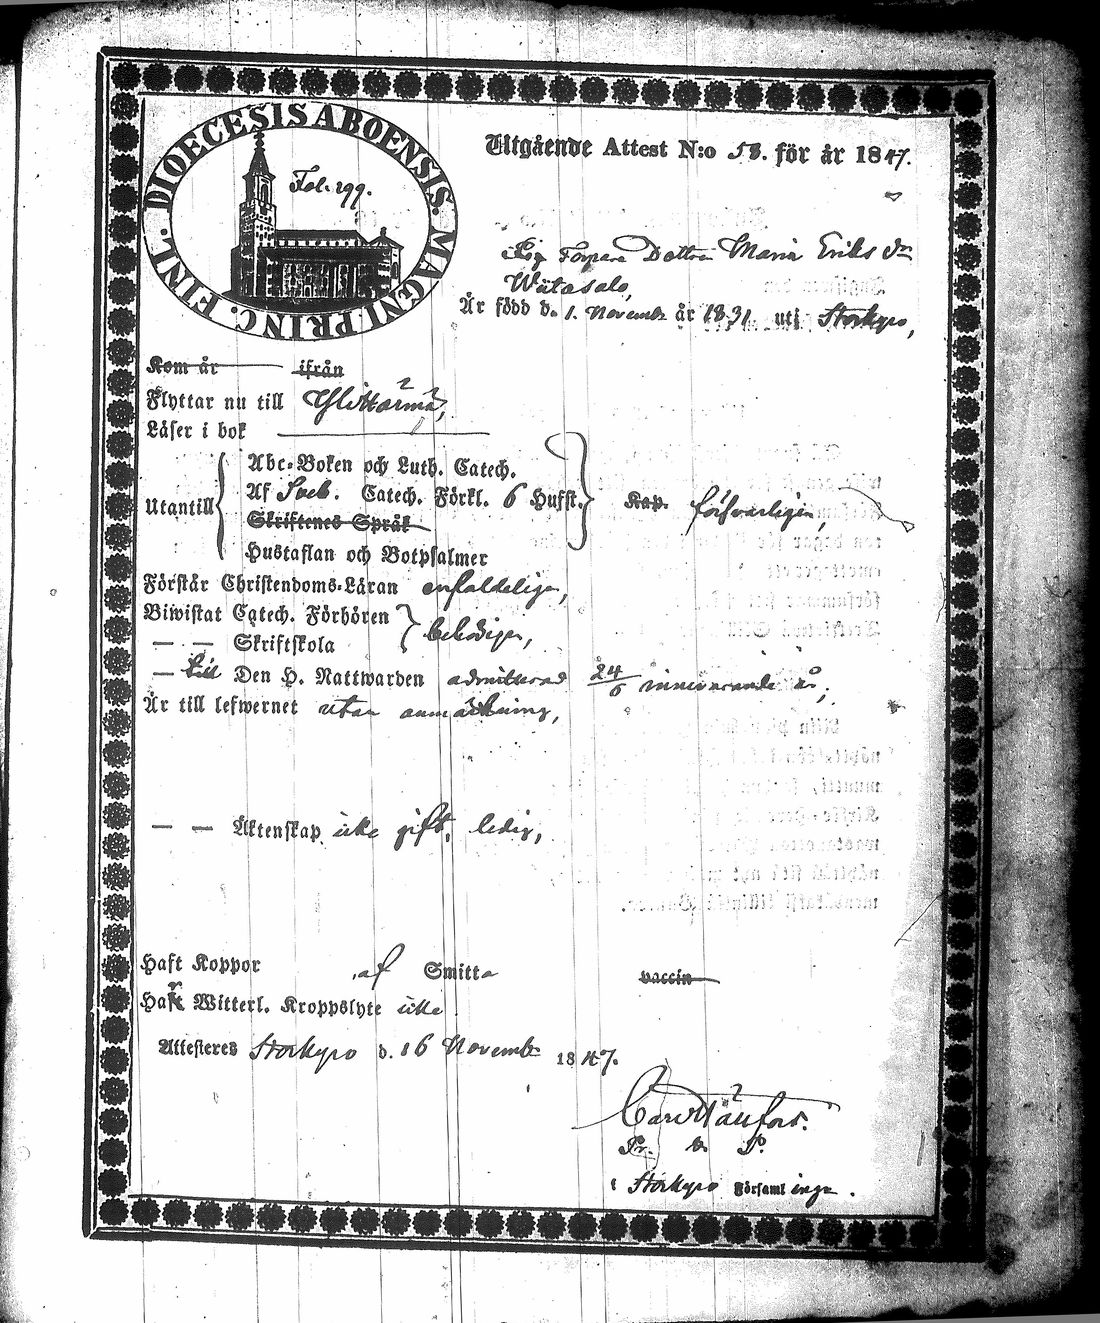 DIOECESIS ABOENSIS. MAGNI PRINC. FINL.
Fol. 199.
Utgående Attest N:o 58. för år 1847.
Dottren Maria Eriks dr
Wätasalo,
Är född d. 1. Novembr år 1831 uti Storkyro,
Kom år ifrån
Flyttar nu till Ylihärmä,
Läser i bok
Utantill
Abc-Boken och Luth. Catech.
Af Sveb. Catech. Förkl. 6 Hufst. Kap. försvarligen,
Skriftenes Språk
Hustaflan och Botpsalmer
Förstår Christendoms-Läran enfaldeligen,
Biwistat Catech. Förhören
— — Skriftskola behörigen,
— till Den H. Nattwarden admitterad 24/6 innevarande år,
Är till lefwernet utan anmärkning,
— — Äktenskap icke gift, ledig,
Haft Koppor af Smitta vaccin
Har Witterl. Kroppslyte icke
Attesteres Storkyro d. 16 Novembr 1847.
i Storkyro Församlinge.